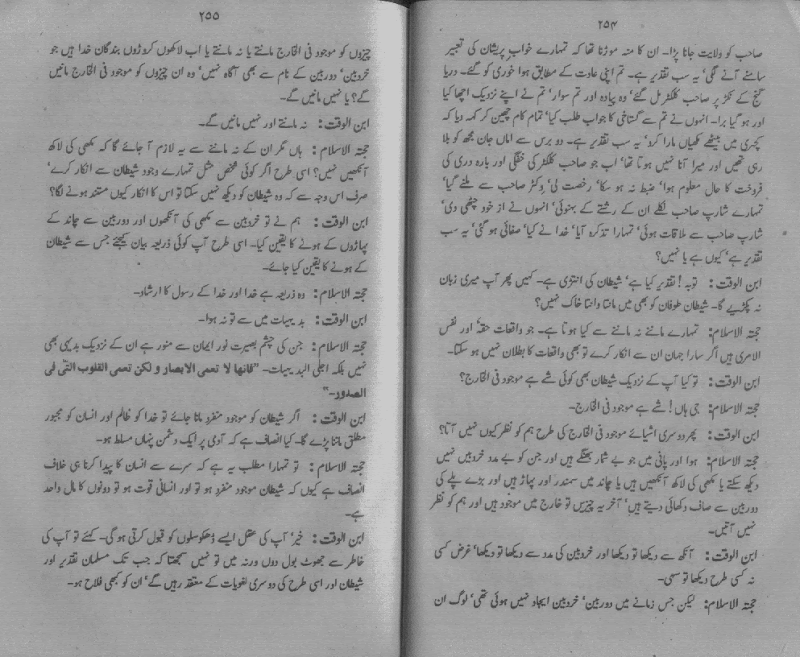 ۲۵۴
صاحب کو ولایت جانا پڑا۔ ان کا منہ موڑنا تھا کہ تمہارے خواب پریشان کی تعبیر
سامنے آنے لگی‘ یہ سب تقدیر ہے۔ تم اپنی عادت کے مطابق ہوا خوری کو گئے۔ دریا
گنج کے نکڑ پر صاحب کلکٹر مل گئے‘ وہ پیادہ اور تم سوار‘ تم نے اپنے نزدیک اچھا کیا
اور ہو گیا برا۔ انہوں نے تم سے گستاخی کا جواب طلب کیا‘ تمام کام چھین کر کہہ دیا کہ
کچہری میں بیٹھے مکھیاں مارا کرو‘ یہ سب تقدیر ہے۔ دو برس سے اماں جان مجھ کو بلا
رہی تھیں اور میرا آنا نہیں ہوتا تھا‘ اب جو صاحب کلکٹر کی خفگی اور بارہ دری کی
فروخت کا حال معلوم ہوا‘ ضبط نہ ہو سکا‘ رخصت لی‘ وکٹر صاحب سے ملنے گیا‘
تمہارے شارپ صاحب نکلے ان کے رشتے کے بہنوئی‘ انہوں نے از خود چٹھی دی‘
شارپ صاحب سے ملاقات ہوئی‘ تمہارا تذکرہ آیا‘ خدا نے کیا‘ صفائی ہو گئی‘ یہ سب
تقدیر ہے‘ کیوں ہے یا نہیں؟
ابن الوقت: توبہ! تقدیر کیا ہے‘ شیطان کی انتڑی ہے۔ کہیں پھر آپ میری زبان
نہ پکڑیے گا۔ شیطان طوفان کو بھی میں مانتا وانتا خاک نہیں؟
حجتہ الاسلام: تمہارے ماننے نہ ماننے سے کیا ہوتا ہے۔ جو واقعات حقہ اور نفس
الامری ہیں اگر سارا جہان ان سے انکار کرے تو بھی واقعات کا بطلان نہیں ہو سکتا۔
ابن الوقت: تو کیا آپ کے نزدیک شیطان بھی کوئی شے ہے موجود فی الخارج؟
حجتہ الاسلام: جی ہاں! شے ہے موجود فی الخارج۔
ابن الوقت: پھر دوسری اشیائے موجود فی الخارج کی طرح ہم کو نظر کیوں نہیں آتا؟
حجتہ الاسلام: ہوا اور پانی میں جو بے شمار بھنگے ہیں اور جن کو بے مدد خردبیں نہیں
دیکھ سکتے یا مکھی کی لاکھ آنکھیں ہیں یا چاند میں سمندر اور پہاڑ ہیں اور بڑے پلے کی
دوربین سے صاف دکھائی دیتے ہیں‘ آخر یہ چیزیں تو خارج میں موجود ہیں اور ہم کو نظر
نہیں آتیں۔
ابن الوقت: آنکھ سے دیکھا تو دیکھا اور خردبین کی مدد سے دیکھا تو دیکھا‘ غرض کسی
نہ کسی طرح دیکھا تو سہی۔
حجتہ الاسلام: لیکن جس زمانے میں دوربین‘ خردبین ایجاد نہیں ہوئی تھی‘ لوگ ان
۲۵۵
چیزوں کو موجود فی الخارج مانتے یا نہ مانتے یا اب لاکھوں کروڑوں بندگان خدا ہیں جو
خردبین‘ دوربین کے نام سے بھی آگاہ نہیں‘ وہ ان چیزوں کو موجود فی الخارج مانیں
گے؟ یا نہیں مانیں گے۔
ابن الوقت: نہ مانتے اور نہیں مانیں گے۔
حجتہ الاسلام: ہاں مگر ان کے نہ ماننے سے یہ لازم آ جائے گا کہ مکھی کی لاکھ
آنکھیں نہیں؟ اسی طرح اگر کوئی شخص مثل تمہارے وجود شیطان سے انکار کرے‘
صرف اس وجہ سے کہ وہ شیطان کو دیکھ نہیں سکتا تو اس کا انکار کیوں مستند ہونے لگا؟
ابن الوقت: ہم نے تو خردبین سے مکھی کی آنکھوں اور دوربین سے چاند کے
پہاڑوں کے ہونے کا یقین کیا۔ اسی طرح آپ کوئی ذریعہ بیان کیجئے جس سے شیطان
کے ہونے کا یقین کیا جائے۔
حجتہ الاسلام: وہ ذریعہ ہے خدا اور خدا کے رسول کا ارشاد۔
ابن الوقت: بدیہیات میں سے تو نہ ہوا۔
حجتہ الاسلام: جن کی چشم بصیرت نور ایمان سے منور ہے ان کے نزدیک بدیہی بھی
نہیں بلکہ اجلی البدیہیات۔ ”فانها لا تعمى الابصار و لكن تعمى القلوب التى فى
الصدور۔“
ابن الوقت: اگر شیطان کو موجود منفرد مانا جائے تو خدا کو ظالم اور انسان کو مجبور
مطلق ماننا پڑے گا۔ کیا انصاف ہے کہ آدمی پر ایک دشمن پنہاں مسلط ہو۔
حجتہ الاسلام: تو تمہارا مطلب یہ ہے کہ سرے سے انسان کا پیدا کرنا ہی خلاف
انصاف ہے کیوں کہ شیطان موجود منفرد ہو تو اور انسانی قوت ہو تو دونوں کا مآل واحد
ہے۔
ابن الوقت: خیر‘ آپ کی عقل ایسے ڈھکوسلوں کو قبول کرتی ہو گی۔ کہئے تو آپ کی
خاطر سے جھوٹ بول دوں ورنہ میں تو نہیں سمجھتا کہ جب تک مسلمان تقدیر اور
شیطان اور اسی طرح کی دوسری لغویات کے معتقد رہیں گے‘ ان کو کبھی فلاح ہو۔